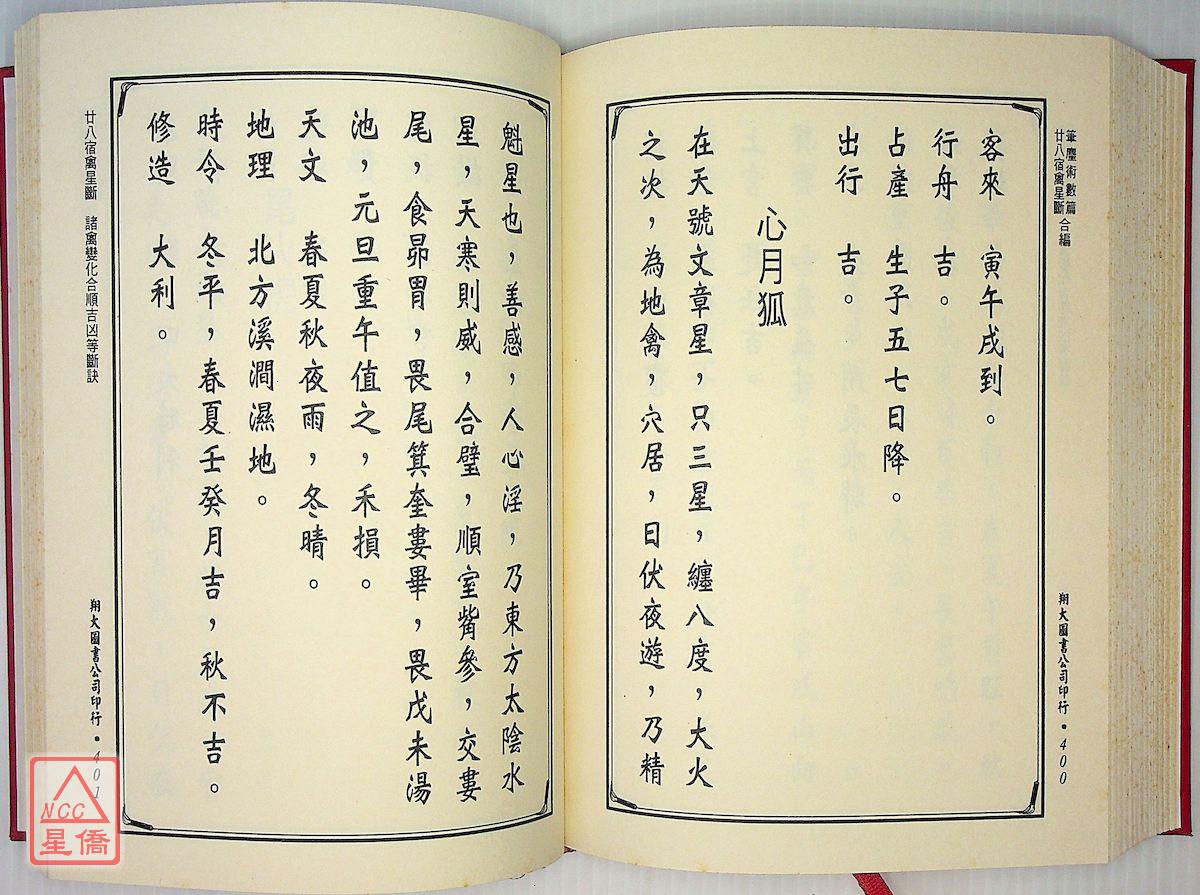 筆塵術數篇
廿八宿禽星斷 合編
客來　寅午戌到。
行舟　吉。
占產　生子五七日降。
出行　吉。
心月狐
在天號文章星，只三星，纏八度，大火
之次，為地禽，穴居，日伏夜遊，乃精
翔大圖書公司印行・400
魁星也，善感，人心淫，乃東方太陰水
星，天寒則威，合璧，順室觜參，交婁
尾，食昴胃，畏尾箕奎婁畢，畏戊未湯
池，元旦重午值之，禾損。
天文　春夏秋夜雨，冬晴。
地理　北方溪澗濕地。
時令　冬平，春夏壬癸月吉，秋不吉。
修造　大利。
廿八宿禽星斷　諸禽變化合順吉凶等斷訣
翔大圖書公司印行・401
NCC
星僑